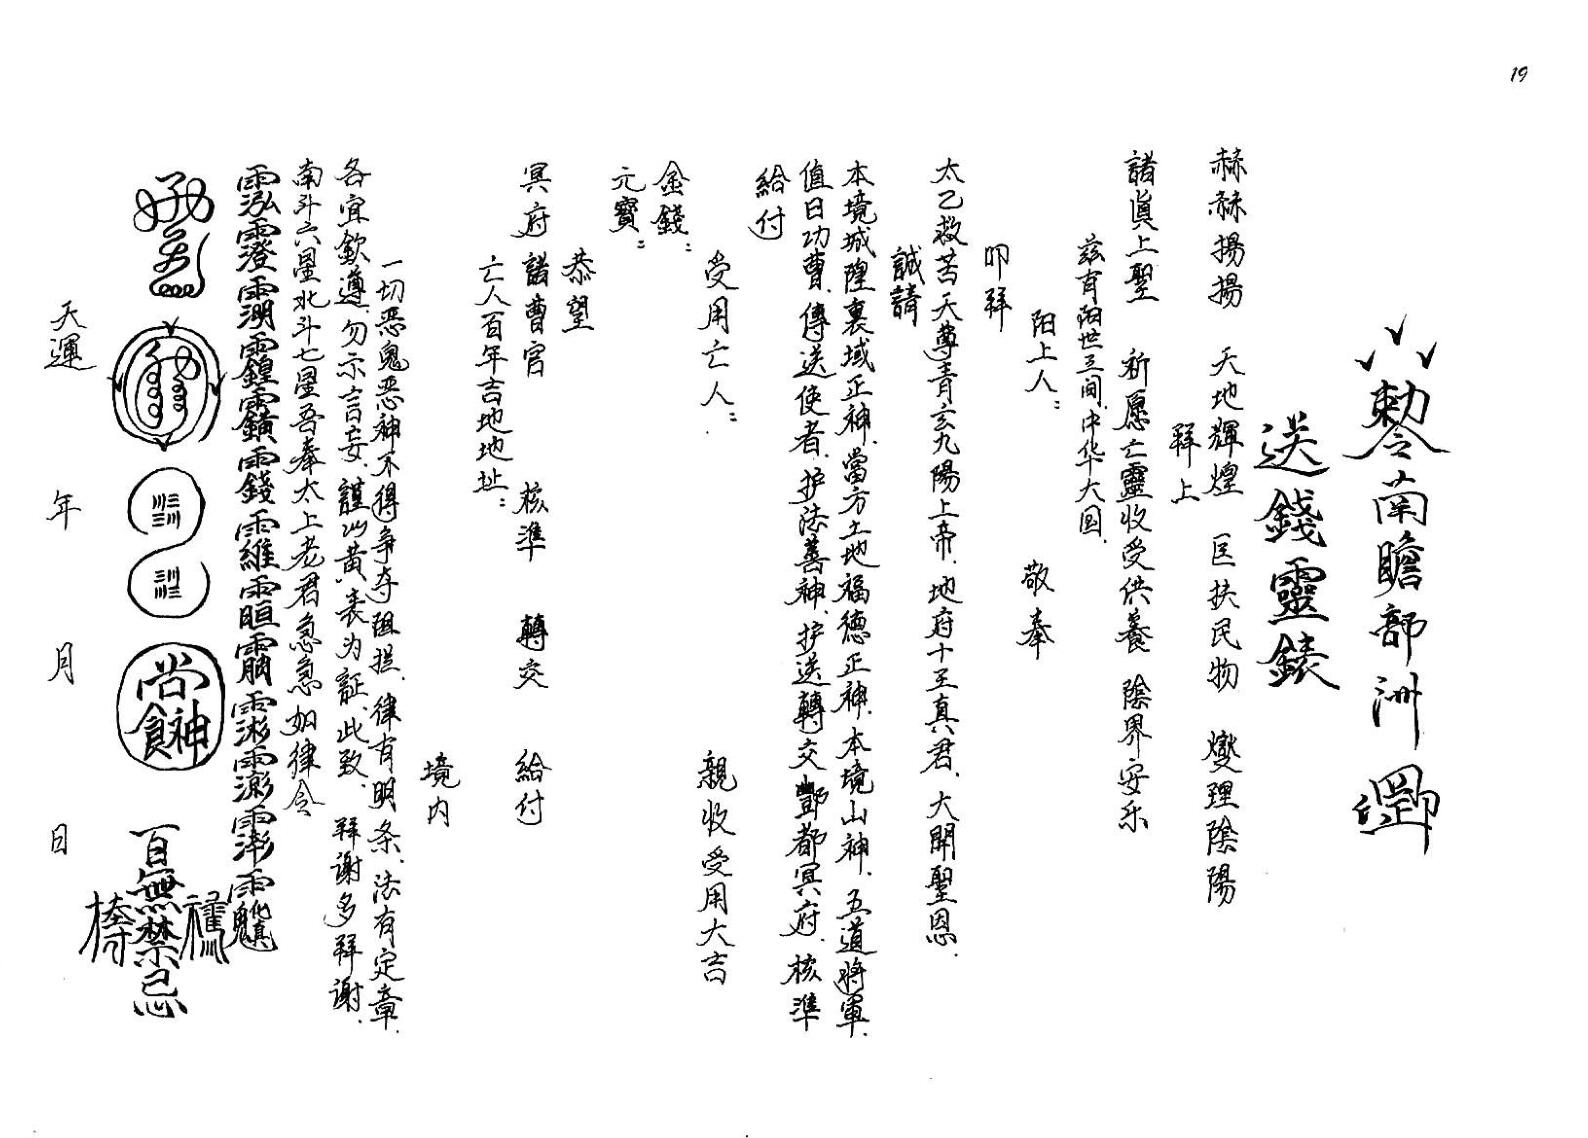 19
敕令南瞻部洲
送錢靈錶
赫赫揚揚 天地輝煌 匡扶民物 燮理陰陽
拜上
諸眞上聖 祈愿亡靈收受供養 陰界安乐
茲有陽世三间.中华大国.
阳上人: 敬奉
叩拜
太乙救苦天尊青玄九陽上帝.地府十王真君.大開聖恩.
誠請
本境城隍裏域正神.當方土地福德正神.本境山神.五道將軍.
值日功曹.傳送使者.护法善神.护送轉交酆都冥府.核準
給付
受用亡人: 親收受用大吉
金錢:
元寶:
恭望
冥府諸曹官 核準 轉交 給付
亡人百年吉地地址:
境内
一切恶鬼恶神不得争夺阻拦.律有明条.法有定章.
各宜欽遵.勿示言妄.謹以黄表为証.此致.拜谢多拜谢.
南斗六星北斗七星吾奉太上老君急急如律令
尚食神
百無禁忌
天運 年 月 日